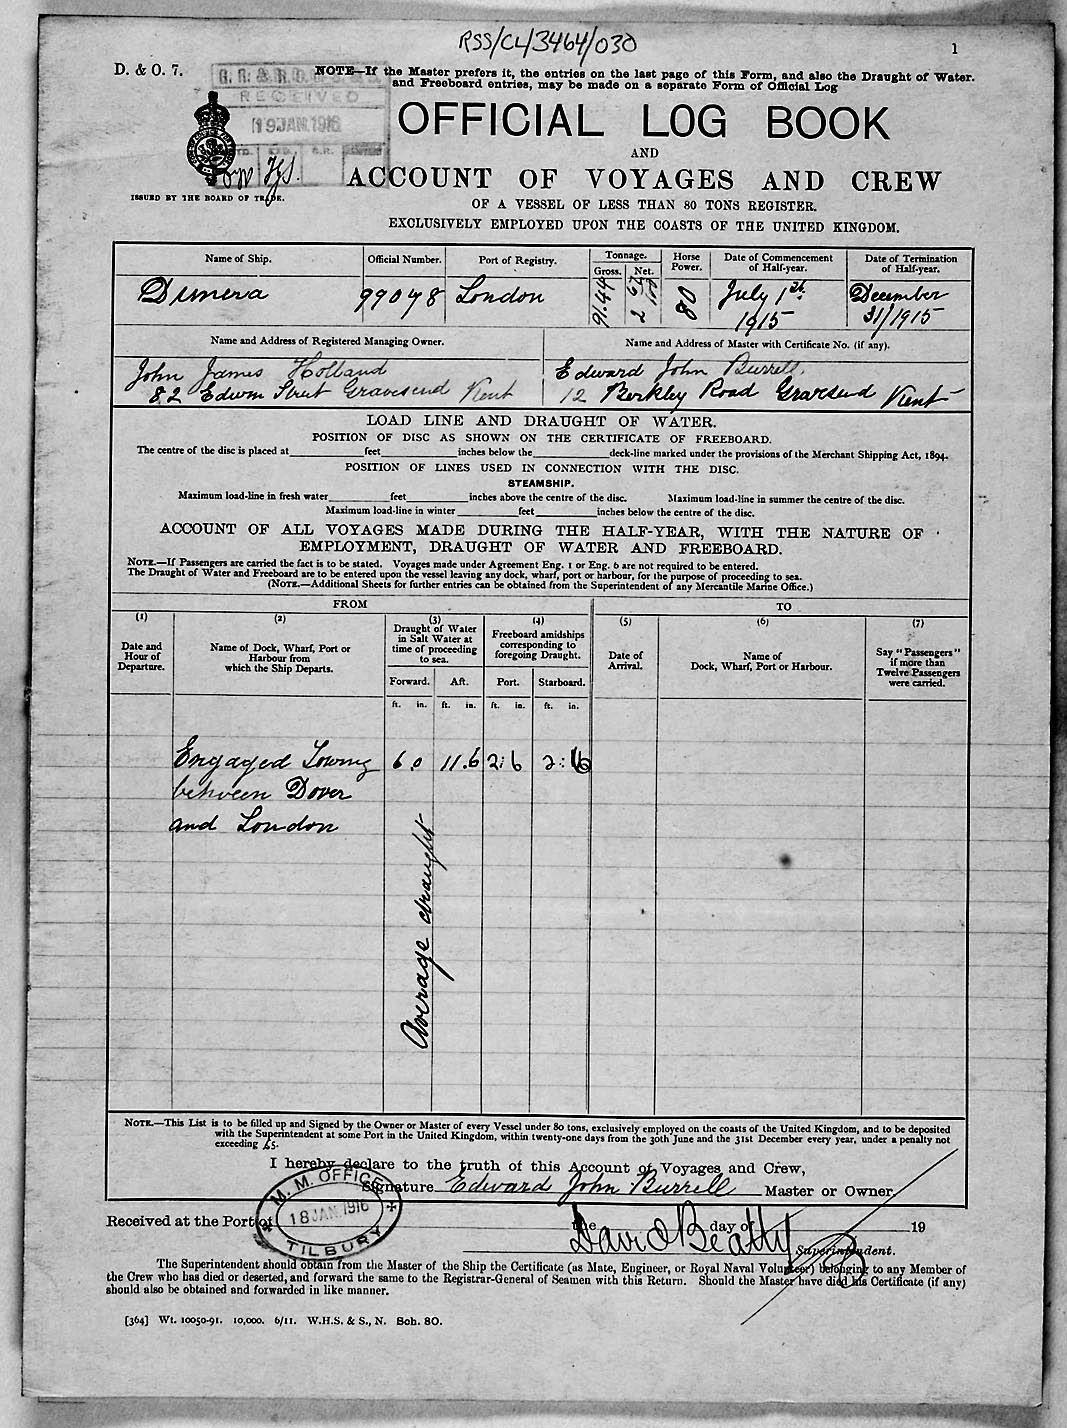 RSS/CL/3464/030
1
D. & O. 7.
NOTE—If the Master prefers it, the entries on the last page of this Form, and also the Draught of Water.
and Freeboard entries, may be made on a separate Form of Official Log
RECEIVED
19 JAN. 1916
OFFICIAL LOG BOOK
AND
ACCOUNT OF VOYAGES AND CREW
ISSUED BY THE BOARD OF TRADE.
OF A VESSEL OF LESS THAN 80 TONS REGISTER.
EXCLUSIVELY EMPLOYED UPON THE COASTS OF THE UNITED KINGDOM.
Name of Ship. Official Number. Port of Registry. Tonnage. Gross. Net. Horse Power. Date of Commencement of Half-year. Date of Termination of Half-year.
Dimera 99078 London 91.44 80 July 1st 1915 December 31/1915
Name and Address of Registered Managing Owner. Name and Address of Master with Certificate No. (if any).
John James Holland Edward John Burrell.
82 Edwin Street Gravesend Kent 12 Berkley Road Gravesend Kent
LOAD LINE AND DRAUGHT OF WATER.
POSITION OF DISC AS SHOWN ON THE CERTIFICATE OF FREEBOARD.
The centre of the disc is placed at feet inches below the deck-line marked under the provisions of the Merchant Shipping Act, 1894.
POSITION OF LINES USED IN CONNECTION WITH THE DISC.
STEAMSHIP.
Maximum load-line in fresh water feet inches above the centre of the disc. Maximum load-line in summer the centre of the disc.
Maximum load-line in winter feet inches below the centre of the disc.
ACCOUNT OF ALL VOYAGES MADE DURING THE HALF-YEAR, WITH THE NATURE OF
EMPLOYMENT, DRAUGHT OF WATER AND FREEBOARD.
NOTE.—If Passengers are carried the fact is to be stated. Voyages made under Agreement Eng. 1 or Eng. 6 are not required to be entered.
The Draught of Water and Freeboard are to be entered upon the vessel leaving any dock, wharf, port or harbour, for the purpose of proceeding to sea.
(NOTE.—Additional Sheets for further entries can be obtained from the Superintendent of any Mercantile Marine Office.)
FROM TO
(1) (2) (3) (4) (5) (6) (7)
Date and Hour of Departure.
Name of Dock, Wharf, Port or Harbour from which the Ship Departs.
Draught of Water in Salt Water at time of proceeding to sea.
Freeboard amidships corresponding to foregoing Draught.
Date of Arrival.
Name of Dock, Wharf, Port or Harbour.
Say "Passengers" if more than Twelve Passengers were carried.
Forward. Aft. Port. Starboard.
ft. in. ft. in. ft. in. ft. in.
Engaged Towing 6.0 11.6 2:6 2:6
between Dover
and London
Average draught
NOTE.—This List is to be filled up and Signed by the Owner or Master of every Vessel under 80 tons, exclusively employed on the coasts of the United Kingdom, and to be deposited
with the Superintendent at some Port in the United Kingdom, within twenty-one days from the 30th June and the 31st December every year, under a penalty not
exceeding £5.
I hereby declare to the truth of this Account of Voyages and Crew,
Signature Edward John Burrell Master or Owner.
M. M. OFFICE
18 JAN. 1916
TILBURY
Received at the Port of the day of 19
David Beatty
Superintendent.
The Superintendent should obtain from the Master of the Ship the Certificate (as Mate, Engineer, or Royal Naval Volunteer) belonging to any Member of
the Crew who has died or deserted, and forward the same to the Registrar-General of Seamen with this Return. Should the Master have died his Certificate (if any)
should also be obtained and forwarded in like manner.
[364] Wt. 10050-91. 10,000. 6/11. W.H.S. & S., N. Sch. 80.